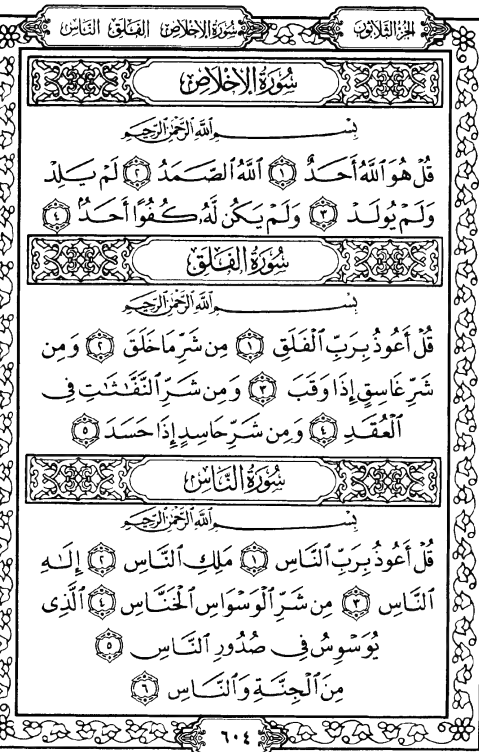 سُورَةُ الإِخْلَاصِ الفَلَقِ النَّاسِ
الجُزْءُ الثَّلَاثُونَ
سُورَةُ الإِخْلَاصِ
بِسْمِ اللَّهِ الرَّحْمَٰنِ الرَّحِيمِ
قُلْ هُوَ اللَّهُ أَحَدٌ ١ اللَّهُ الصَّمَدُ ٢ لَمْ يَلِدْ
وَلَمْ يُولَدْ ٣ وَلَمْ يَكُن لَّهُۥ كُفُوًا أَحَدٌۢ ٤
سُورَةُ الفَلَقِ
بِسْمِ اللَّهِ الرَّحْمَٰنِ الرَّحِيمِ
قُلْ أَعُوذُ بِرَبِّ الْفَلَقِ ١ مِن شَرِّ مَا خَلَقَ ٢ وَمِن
شَرِّ غَاسِقٍ إِذَا وَقَبَ ٣ وَمِن شَرِّ النَّفَّٰثَٰتِ فِي
الْعُقَدِ ٤ وَمِن شَرِّ حَاسِدٍ إِذَا حَسَدَ ٥
سُورَةُ النَّاسِ
بِسْمِ اللَّهِ الرَّحْمَٰنِ الرَّحِيمِ
قُلْ أَعُوذُ بِرَبِّ النَّاسِ ١ مَلِكِ النَّاسِ ٢ إِلَٰهِ
النَّاسِ ٣ مِن شَرِّ الْوَسْوَاسِ الْخَنَّاسِ ٤ الَّذِي
يُوَسْوِسُ فِي صُدُورِ النَّاسِ ٥
مِنَ الْجِنَّةِ وَالنَّاسِ ٦
٦٠٤